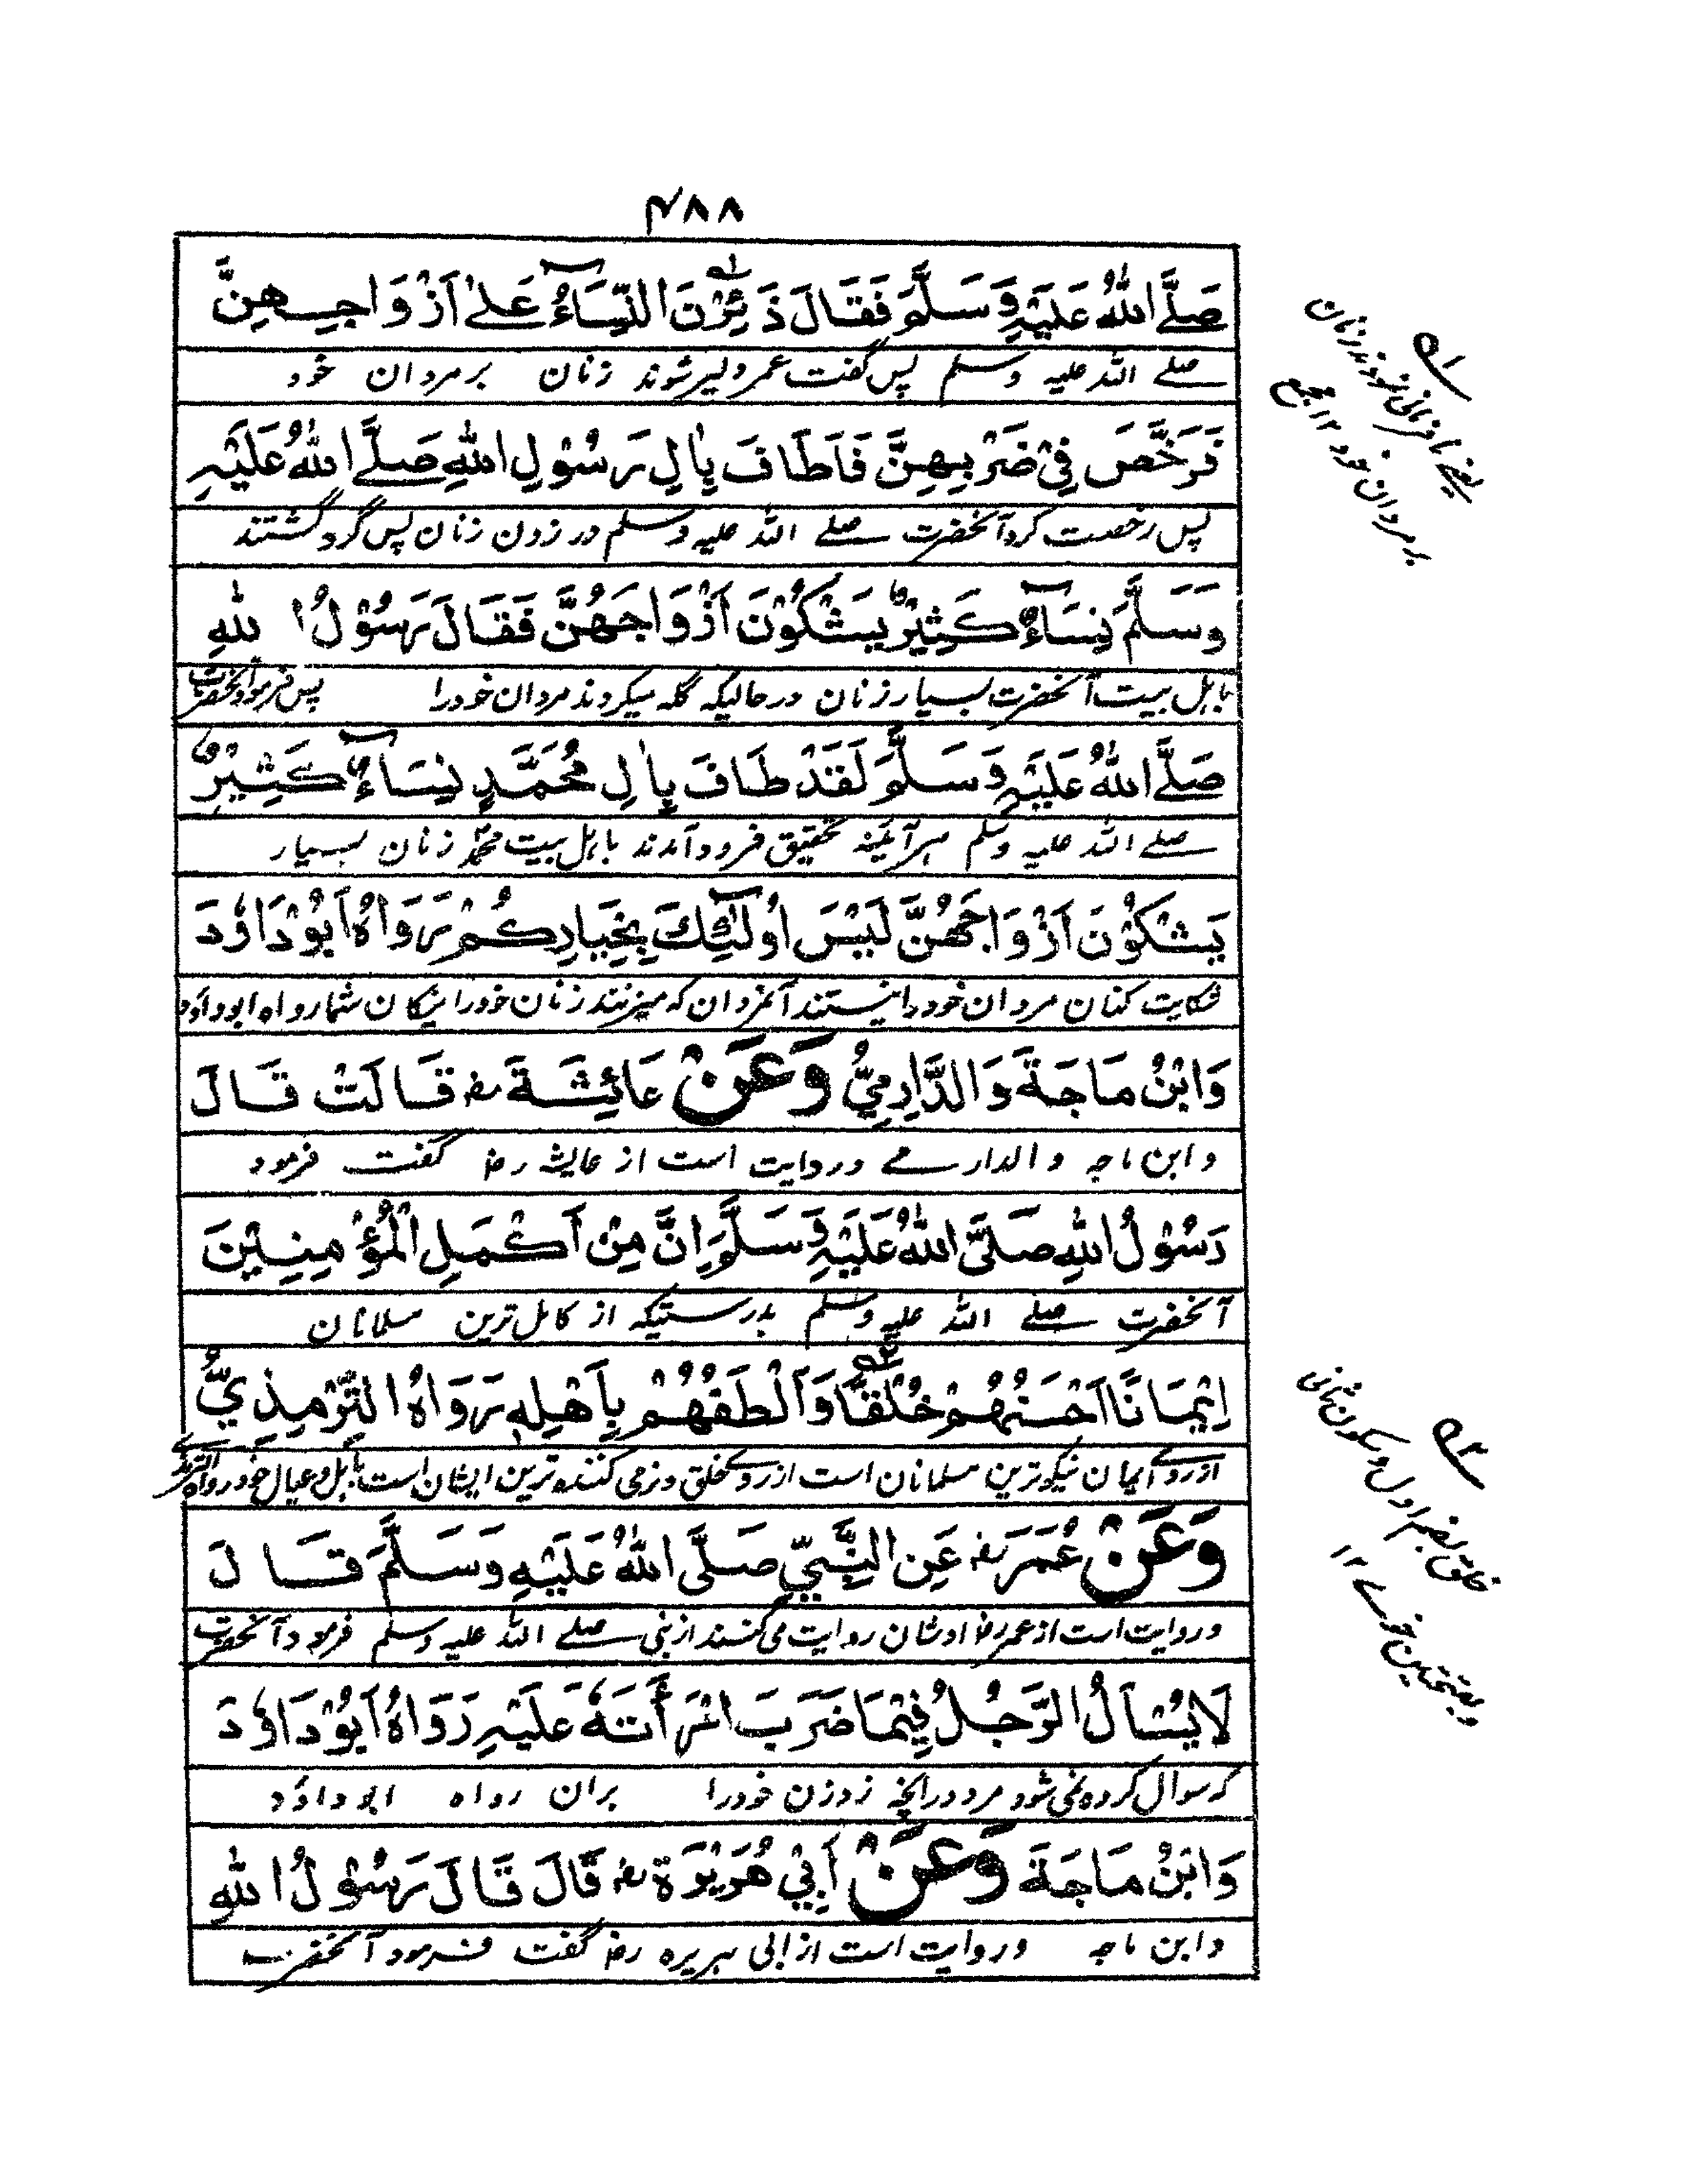 ۴۸۸
صَلَّے اللّٰهُ عَلَیْهِ وَسَلَّمَ فَقَالَ ذَئِرْنَ النِّسَآءُ عَلٰے اَزْوَاجِهِنَّ
صلے اللہ علیہ وسلم پس گفت عمر دلیر شوند زنان بر مردان خود
فَرَخَّصَ فِیْ ضَرْبِهِنَّ فَاَطَافَ بِاٰلِ رَسُوْلِ اللّٰهِ صَلَّے اللّٰهُ عَلَیْهِ
پس رخصت کرد آنحضرت صلے اللہ علیہ وسلم در زدن زنان پس گرد گشتند
وَسَلَّمَ نِسَآءٌ کَثِیْرٌ یَشْکُوْنَ اَزْوَاجَهُنَّ فَقَالَ رَسُوْلُ اللّٰهِ
باہل بیت آنحضرت بسیار زنان در حالیکہ گلہ میکردند مردان خود را پس فرمود آنحضرت
صَلَّے اللّٰهُ عَلَیْهِ وَسَلَّمَ لَقَدْ طَافَ بِاٰلِ مُحَمَّدٍ نِسَآءٌ کَثِیْرٌ
صلے اللہ علیہ وسلم ہر آئینہ تحقیق فرود آمدند باہل بیت محمد زنان بسیار
یَشْکُوْنَ اَزْوَاجَهُنَّ لَیْسَ اُولٰٓئِكَ بِخِیَارِکُمْ رَوَاهُ اَبُوْدَاوٗدَ
شکایت کنان مردان خود را نیستند آنمردان کہ میزنند زنان خود را نیکان شما رواہ ابوداؤد
وَابْنُ مَاجَةَ وَالدَّارِمِیُّ وَعَنْ عَائِشَةَ رض قَالَتْ قَالَ
وابن ماجہ والدارمے و روایت است از عایشہ رض گفت فرمود
رَسُوْلُ اللّٰهِ صَلَّی اللّٰهُ عَلَیْهِ وَسَلَّمَ اِنَّ مِنْ اَکْمَلِ الْمُؤْمِنِیْنَ
آنحضرت صلے اللہ علیہ وسلم بدرستیکہ از کامل ترین مسلمانان
اِیْمَانًا اَحْسَنُهُمْ خُلُقًا وَاَلْطَفُهُمْ بِاَهْلِهٖ رَوَاهُ التِّرْمِذِیُّ
از روے ایمان نیکوترین مسلمانان است از روے خلق و نرمی کننده ترین ایشان است باہل و عیال خود رواه الترمذے
وَعَنْ عُمَرَ رض عَنِ النَّبِیِّ صَلَّی اللّٰهُ عَلَیْهِ وَسَلَّمَ قَالَ
و روایت است از عمر رض اوشان روایت می کنند از نبی صلے اللہ علیہ وسلم فرمود آنحضرت
لَا یُسْاَلُ الرَّجُلُ فِیْمَا ضَرَبَ امْرَأَتَهٗ عَلَیْهِ رَوَاهُ اَبُوْدَاوٗدَ
کہ سوال کرده نمی شود مرد در آنچہ زد زن خود را بران رواہ ابوداؤد
وَابْنُ مَاجَةَ وَعَنْ اَبِیْ هُرَیْرَةَ رض قَالَ قَالَ رَسُوْلُ اللّٰهِ
وابن ماجہ و روایت است از ابی ہریره رض گفت فرمود آنحضرت
۱
یعنے نافرمانی نمودند زنان
بر مردان خود ۱۲ مجمع
۲
خلق بضم اول و سکون ثانی
وبضمتین خوے ۱۲